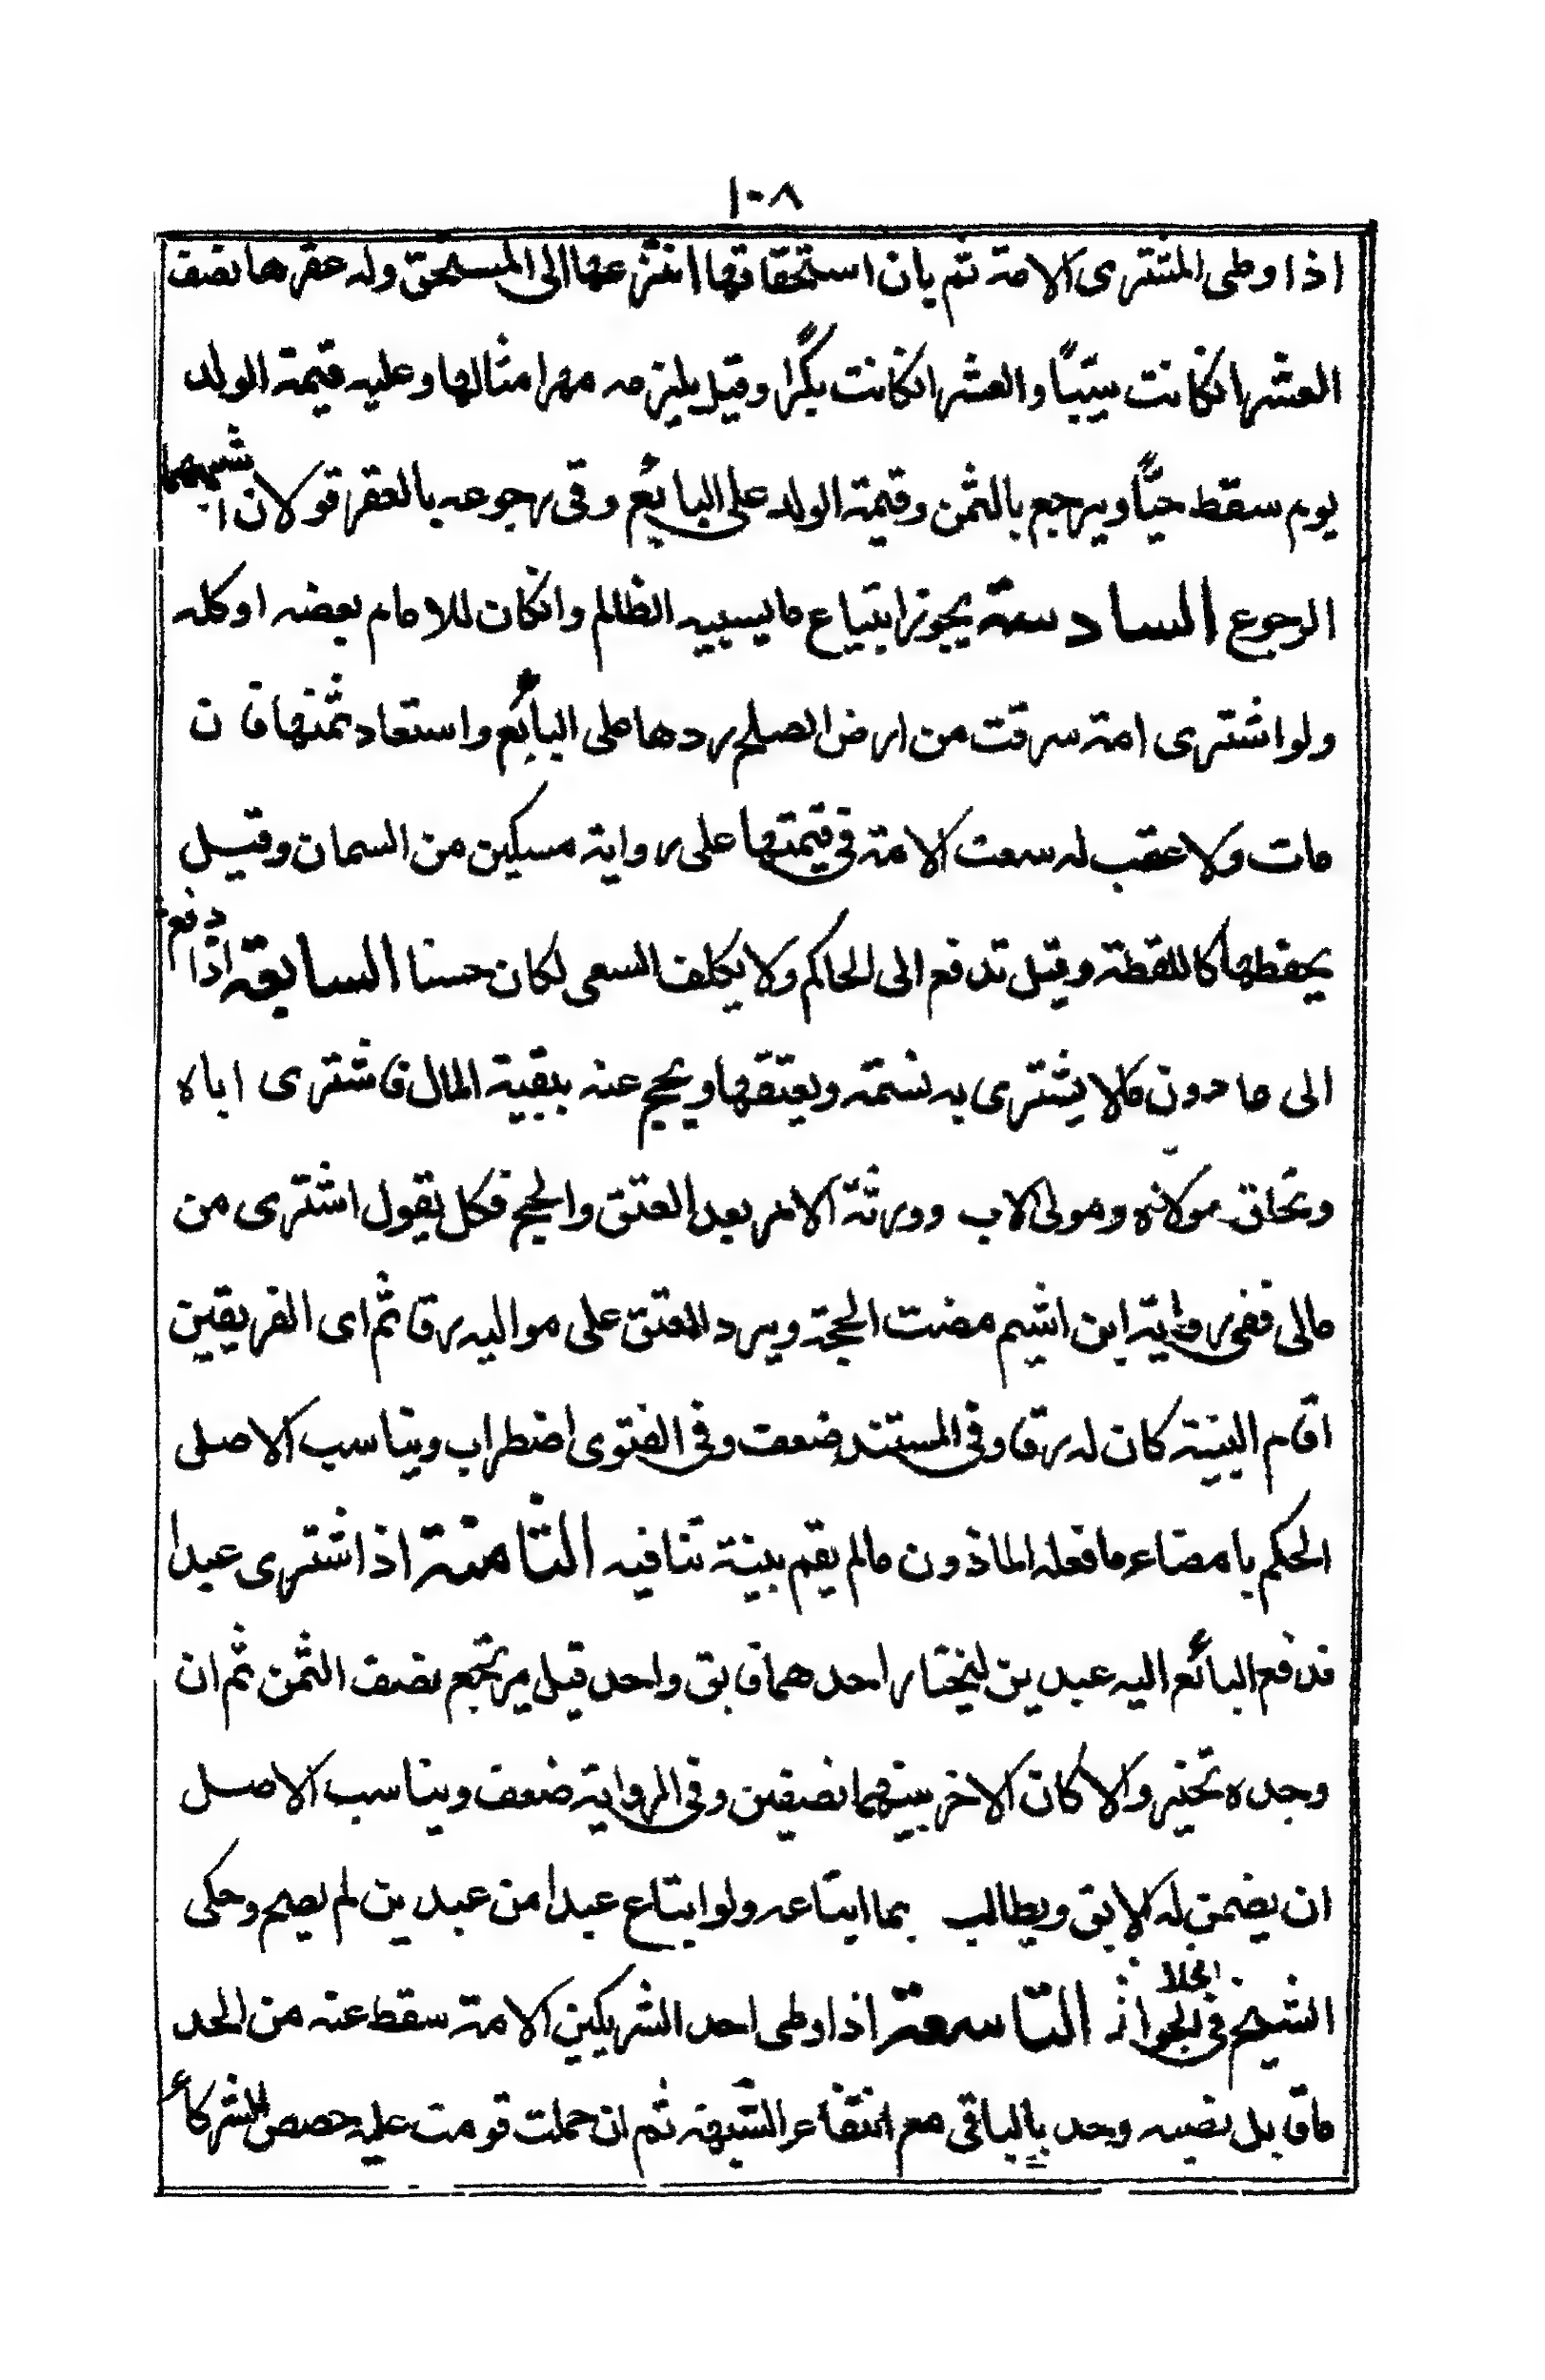 ١٠٨
اذا وطى المشترى الامة ثم بان استحقاقها انتزعها الى المستحق وله عقرها نصف
العشر انكانت ثيبًا والعشر انكانت بكرًا وقيل يلزمه مهر امثالها وعليه قيمة الولد
يوم سقط حيًّا ويرجع بالثمن وقيمة الولد على البائع وفى رجوعه بالعقر قولان اشبههما
الرجوع السادسة يجوز ابتياع ما يسبيه الظالم وانكان للامام بعضه او كله
ولو اشترى امة سرقت من ارض الصلح ردها على البائع واستعاد ثمنها فان
مات ولا عقب له سعت الامة فى قيمتها على رواية مسكين من السمان وقيل
يحفظها كاللقطة وقيل تدفع الى الحاكم ولا يكلف السعى لكان حسنا السابعة اذا دفع
الى مادون مالا يشترى به نسمة ويعتقها ويحج عنه ببقية المال فاشترى اباه
وتحاق مولاه ومولى الاب وورثة الامر بعد العتق والحج فكل يقول اشترى من
مالى ففى رواية ابن اشيم مضت الحجة ويرد المعتق على مواليه رقا ثم اى الفريقين
اقام البينة كان له رقا وفى المستند ضعف وفى الفتوى اضطراب ويناسب الاصلى
الحكم بامضاء ما فعله الماذون مالم يقم بينة تنافيه الثامنة اذا اشترى عبدا
فدفع البائع اليه عبدين ليختار احدهما فابق واحد قيل يرتجع نصف الثمن ثم ان
وجده تخير والا كان الاخر بينهما نصفين وفى الرواية ضعف ويناسب الاصل
ان يضمن له الابق ويطالب بما ابتاعه ولو ابتاع عبدا من عبدين لم يصح وحكى
الشيخ فى الخلاف الجواز التاسعة اذا وطى احد الشريكين الامة سقط عنه من الحد
ما قابل نصيبه وحد بالباقى مع انتفاء الشبهة ثم ان حملت قومت عليه حصص الشركاء